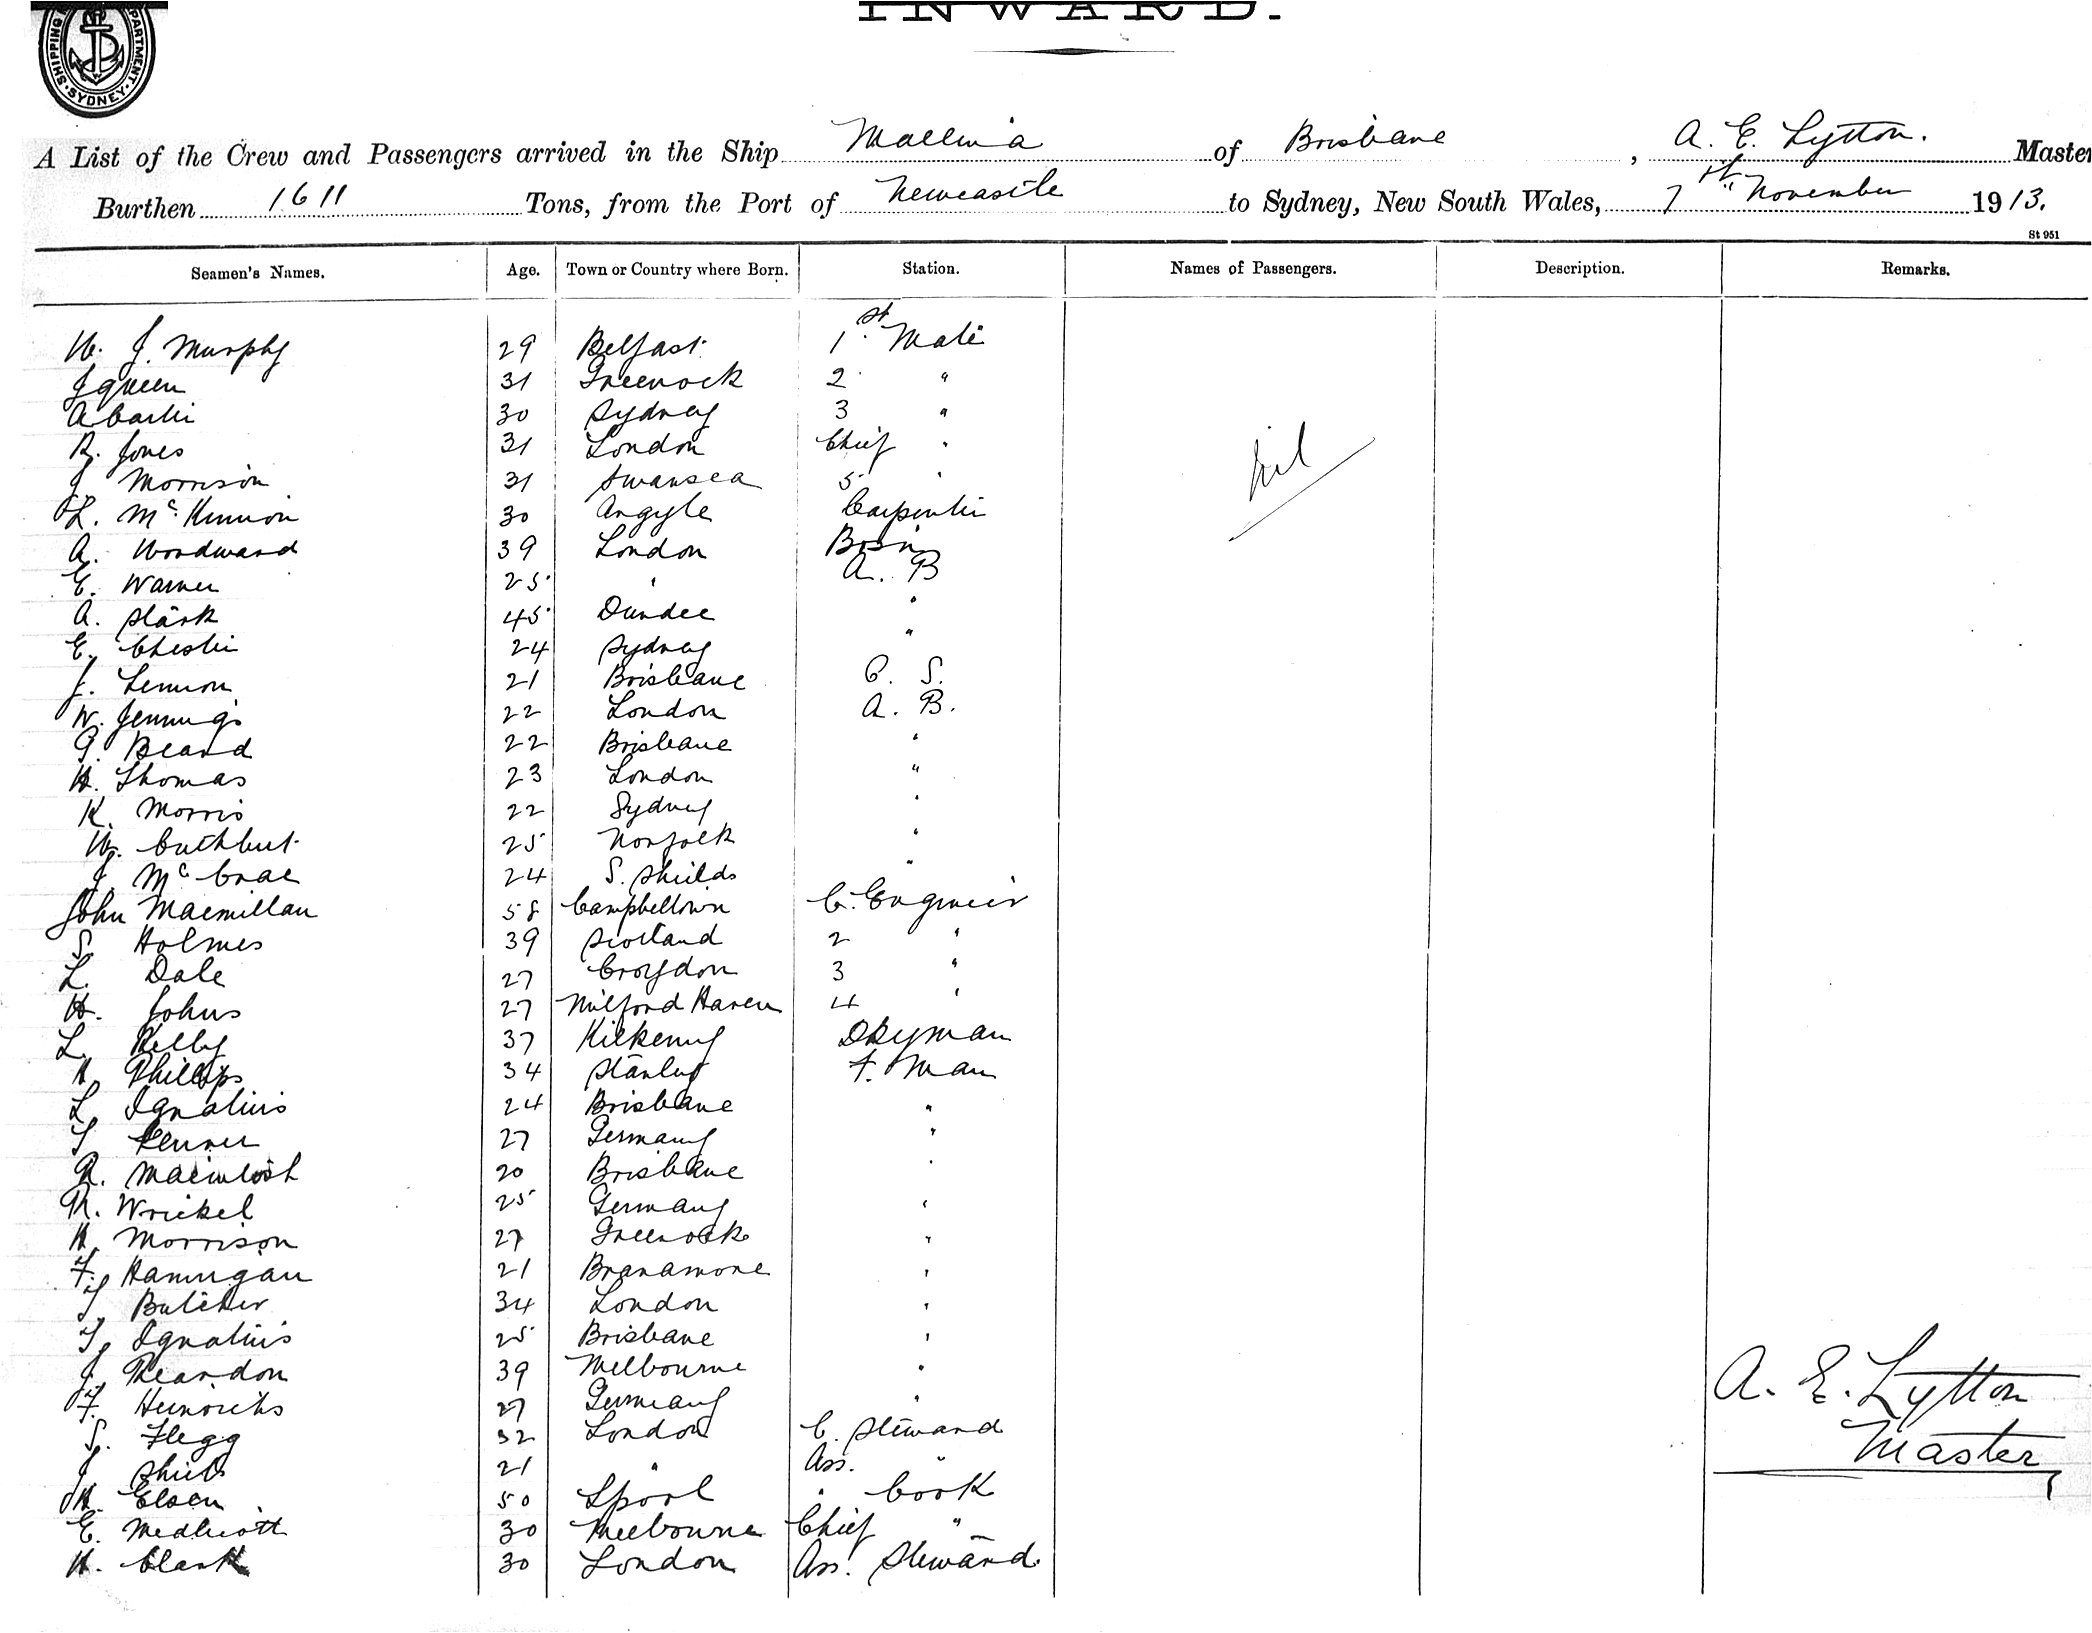 SHIPPING DEPARTMENT SYDNEY
INWARD.
A List of the Crew and Passengers arrived in the Ship Mallina of Brisbane, A. E. Lytton. Master
Burthen 1611 Tons, from the Port of Newcastle to Sydney, New South Wales, 7th November 1913.
St 951
Seamen's Names. Age. Town or Country where Born. Station. Names of Passengers. Description. Remarks.
W. J. Murphy 29 Belfast. 1st Mate
J Queen 31 Greenock 2 "
A 30 Sydney 3 "
R. Jones 31 London Chief "
J Morrison 31 Swansea 5 "
nil
L. McKinnon 30 Argyle Carpenter
A. Woodward 39 London Bosn
E. Warner 25 " A. B
A. Stark 45 Dundee "
E. Chester 24 Sydney "
J. Lennon 21 Brisbane O. S.
W. Jennings 22 London A. B.
G. Beard 22 Brisbane "
H. Thomas 23 London "
K. Morris 22 Sydney "
W. Cuthbert 25 Norfolk "
J. McCrae 24 S. Shields "
John Macmillan 58 Campbeltown C. Engineer
S. Holmes 39 Scotland 2 "
L. Dale 27 Croydon 3 "
H. Johns 27 Milford Haven 4 "
L. Kelly 37 Kilkenny Dkyman
H. Phillips 34 Stanley F. Man
L. Ignatius 24 Brisbane "
T 27 Germany "
R. Macintosh 20 Brisbane "
R. Wrickel 25 Germany "
H. Morrison 27 Greenock "
F. Hannigan 21 "
T. Butcher 34 London "
T. Ignatius 25 Brisbane "
J. Reardon 39 Melbourne "
F. Heinrichs 27 Germany "
S. Flegg 32 London C. Steward
J. 21 " Ass. "
H. Elsen 50 Lpool " Cook
E. Medlicott 30 Melbourne Chief "
H. Clark 30 London Ass. Steward.
A. E. Lytton
Master